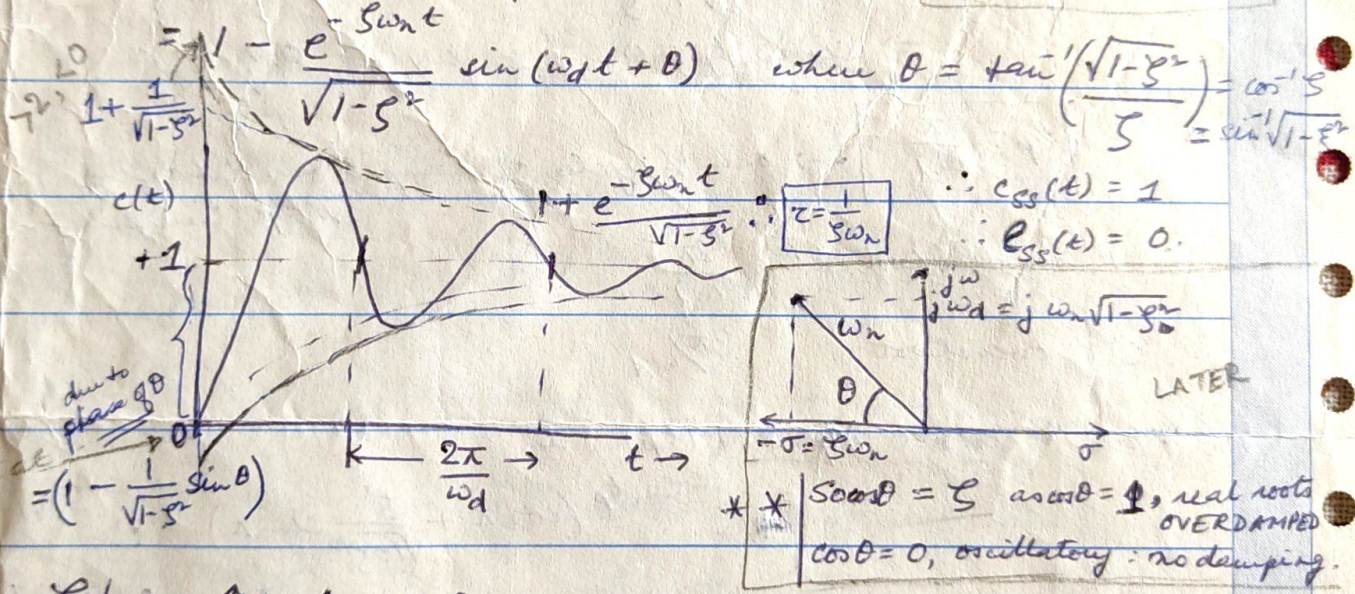 = 1 - e^{-ζω_n t}/√(1-ζ²) sin (ω_d t + θ) where θ = tan⁻¹(√(1-ζ²)/ζ) = cos⁻¹ ζ
= sin⁻¹ √(1-ζ²)
1 + 1/√(1-ζ²)
c(t)
1 + e^{-ζω_n t}/√(1-ζ²) ∴ τ = 1/ζω_n
∴ c_ss(t) = 1
∴ e_ss(t) = 0.
+1
jω
jω_d = j ω_n √(1-ζ²)
ω_n
θ
LATER
due to
phase of θ
0
2π/ω_d
t →
-σ = ζω_n
σ
= (1 - 1/√(1-ζ²) sin θ)
* * So cosθ = ζ as cosθ = 1, real roots
OVERDAMPED
cosθ = 0, oscillatory : no damping.